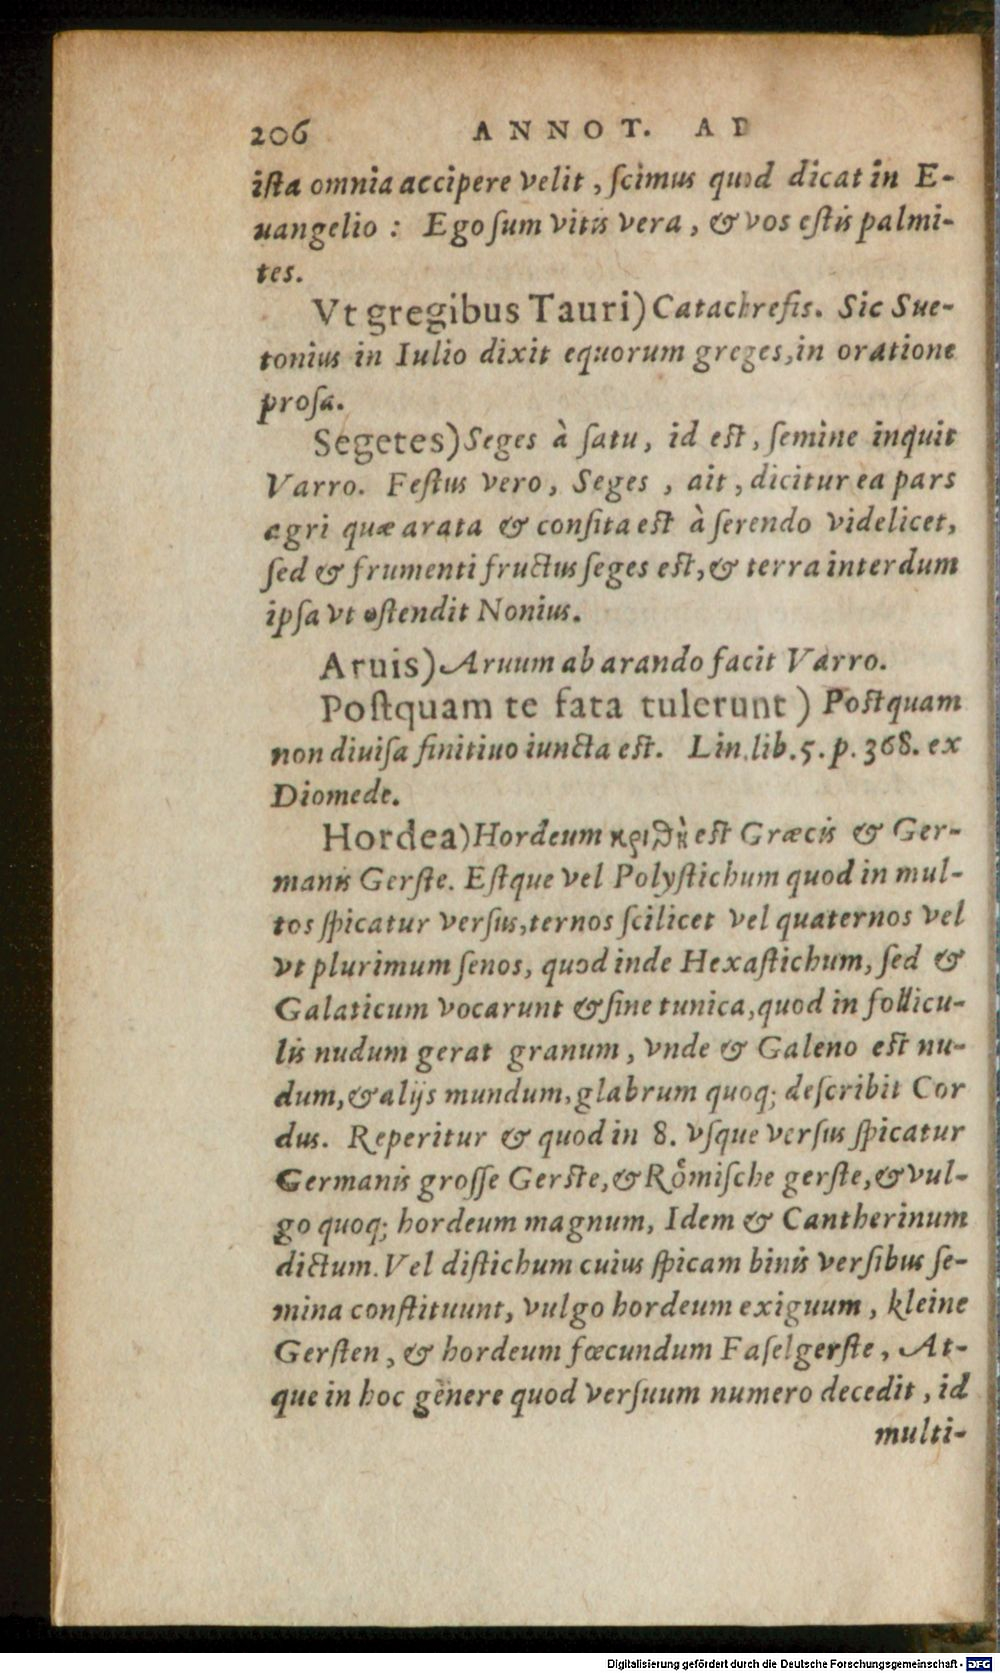 206 ANNOT. AD
iſta omnia accipere velit, ſcimus quod dicat in E-
uangelio : Ego ſum vitis vera, & vos eſtis palmi-
tes.
Vt gregibus Tauri) Catachreſis. Sic Sue-
tonius in Iulio dixit equorum greges, in oratione
proſa.
Segetes) Seges à ſatu, id eſt, ſemine inquit
Varro. Feſtus vero, Seges , ait, dicitur ea pars
agri quæ arata & conſita eſt à ſerendo videlicet,
ſed & frumenti fructus ſeges eſt, & terra interdum
ipſa vt oſtendit Nonius.
Aruis) Aruum ab arando facit Varro.
Poſtquam te fata tulerunt) Poſtquam
non diuiſa finitiuo iuncta eſt. Lin. lib. 5. p. 368. ex
Diomede.
Hordea) Hordeum κριθὴ est Græcis & Ger-
manis Gerſte. Eſtque vel Polyſtichum quod in mul-
tos ſpicatur verſus, ternos ſcilicet vel quaternos vel
vt plurimum ſenos, quod inde Hexaſtichum, ſed &
Galaticum vocarunt & ſine tunica, quod in follicu-
lis nudum gerat granum, vnde & Galeno eſt nu-
dum, & alijs mundum, glabrum quoq; deſcribit Cor
dus. Reperitur & quod in 8. vſque verſus ſpicatur
Germanis groſſe Gerſte, & Rͤomiſche gerſte, & vul-
go quoq; hordeum magnum, Idem & Cantherinum
dictum. Vel diſtichum cuius ſpicam binis verſibus ſe-
mina conſtituunt, vulgo hordeum exiguum, kleine
Gerſten, & hordeum fœcundum Faſelgerſte, At-
que in hoc genere quod verſuum numero decedit, id
multi-
Digitalisierung gefördert durch die Deutsche Forschungsgemeinschaft - DFG